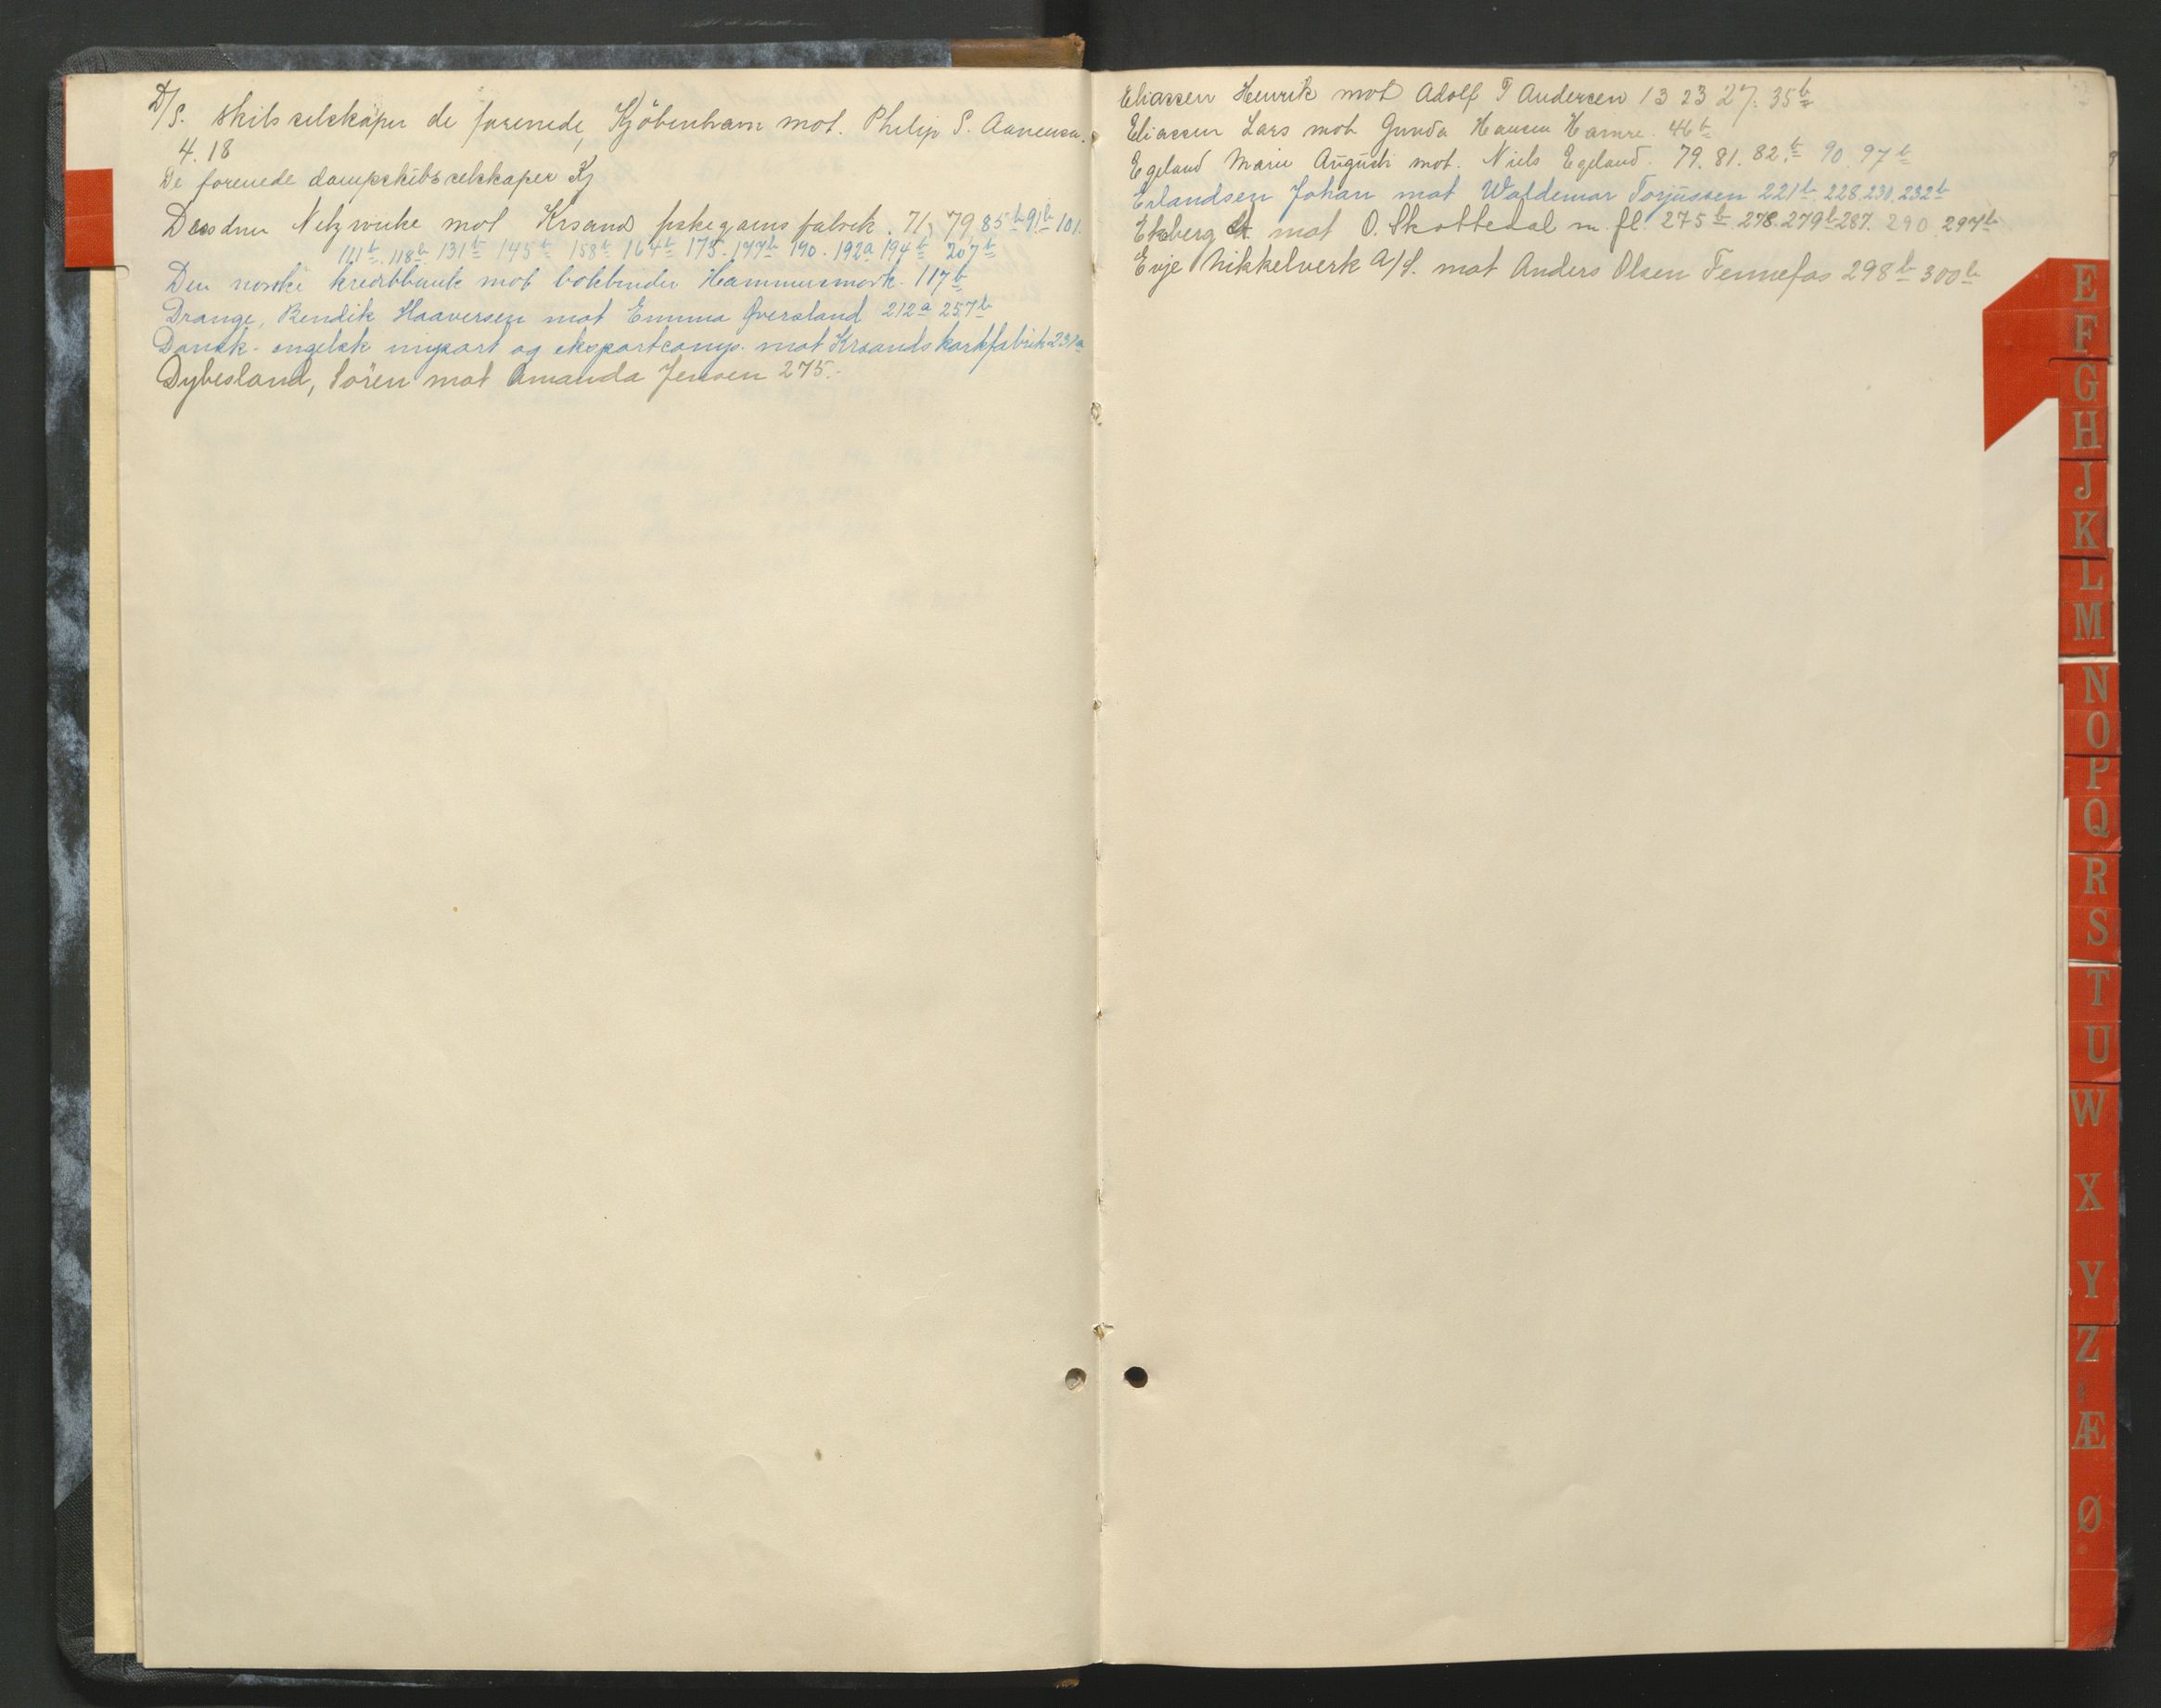 D/S. skibsselskaper de forenede, Kjöbenhavn mot. Philip S. Aanensen.
4. 18
De forenede dampskibsselskaper Kj
Dresdner Netzwerke mot Krsands fiskegarnsfabrik. 71, 79, 85b 91b 101.
111b. 118b 131b 145b 158b 164b 175. 177b 190. 192a 194b 207b
Den norske kreditbank mot bokbinder Hammersmark. 117b
Drange, Bendik Haaversen mot Emma Øversland 212a 257b
Dansk-engelsk import og eksportcomp. mot Krsands korkfabrik 231a
Dybesland, Sören mot Amanda Jensen 275.-
Eliassen Henrik mot Adolf T Andersen 13 23 27. 35b
Eliassen Lars mot Gunda Hansen Hamre. 46b
Egeland Marie Augusti mot. Niels Egeland. 79. 81. 82.b 90. 97b
Erlandsen Johan mot Waldemar Torjussen 221b. 228. 230. 232b
Ekeberg mot O. Skottedal m. fl. 275b 278. 279b 287. 290 297b
Evje Nikkelverk A/S. mot Anders Olsen Fennefos 298b 300b
E
F
G
H
J
K
L
M
N
O
P
Q
R
S
T
U
W
X
Y
Z
Æ
Ø